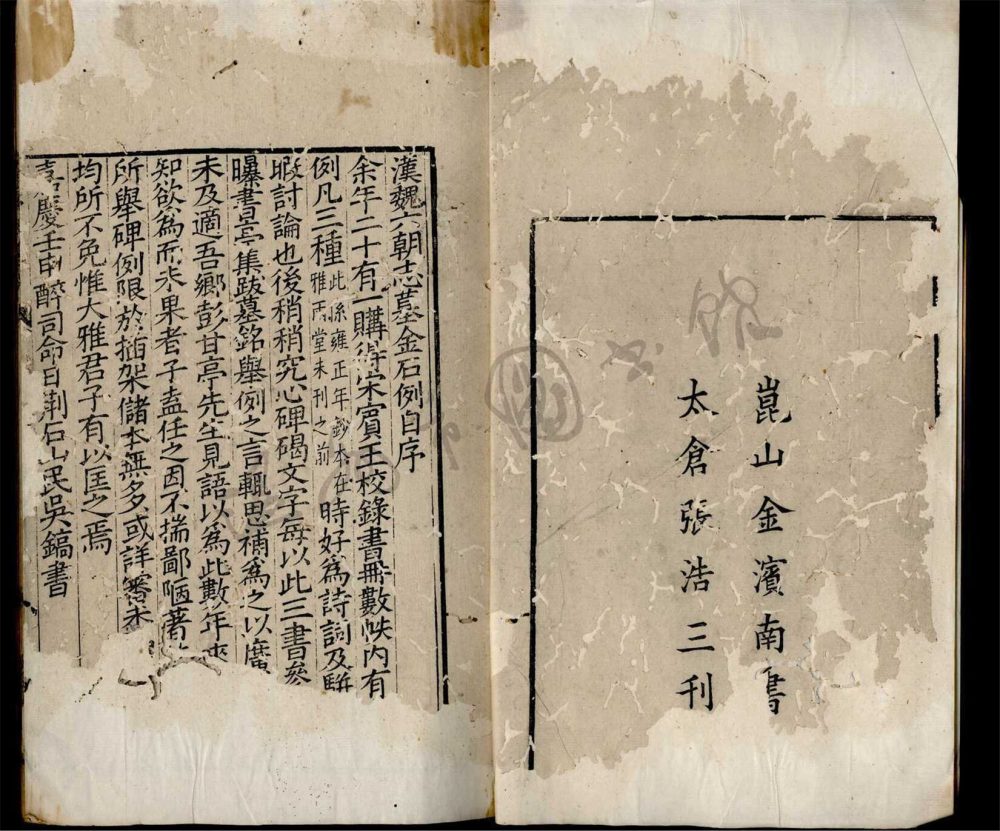 崑山金濱南書
太倉張浩三刊
漢魏六朝志墓金石例自序
余年二十有一購得宋賓王校錄書冊數帙內有
例凡三種此係雍正年鈔本在雅雨堂未刊之前時好為詩詞及駢
暇討論也後稍稍究心碑碣文字每以此三書參
曝書亭集跋墓銘舉例之言輒思補為之以廣
未及適吾鄉彭甘亭先生見語以為此數年來
知欲為而未果者子盍任之因不揣鄙陋著
所舉碑例限於插架儲本無多或詳審未
均所不免惟大雅君子有以匡之焉
嘉慶壬申醉司命日荆石山民吳鎬書